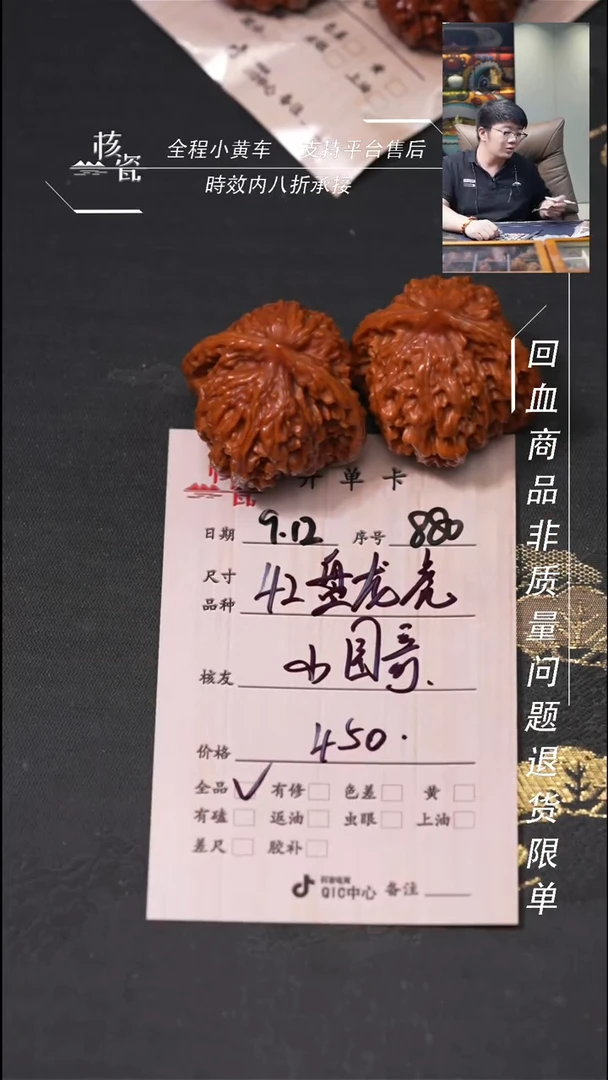 色差 黄
上油
中心 备注
核瓷
全程小黄车 支持平台售后
時效内八折承接
回血商品非质量问题退货限单
核瓷
开单卡
日期 9.12 序号 880
尺寸
品种 42盘龙虎
核友 小国哥.
价格 450.
全品 ✓ 有修 色差 黄
有磕 返油 虫眼 上油
差尺 胶补
QIC中心 备注